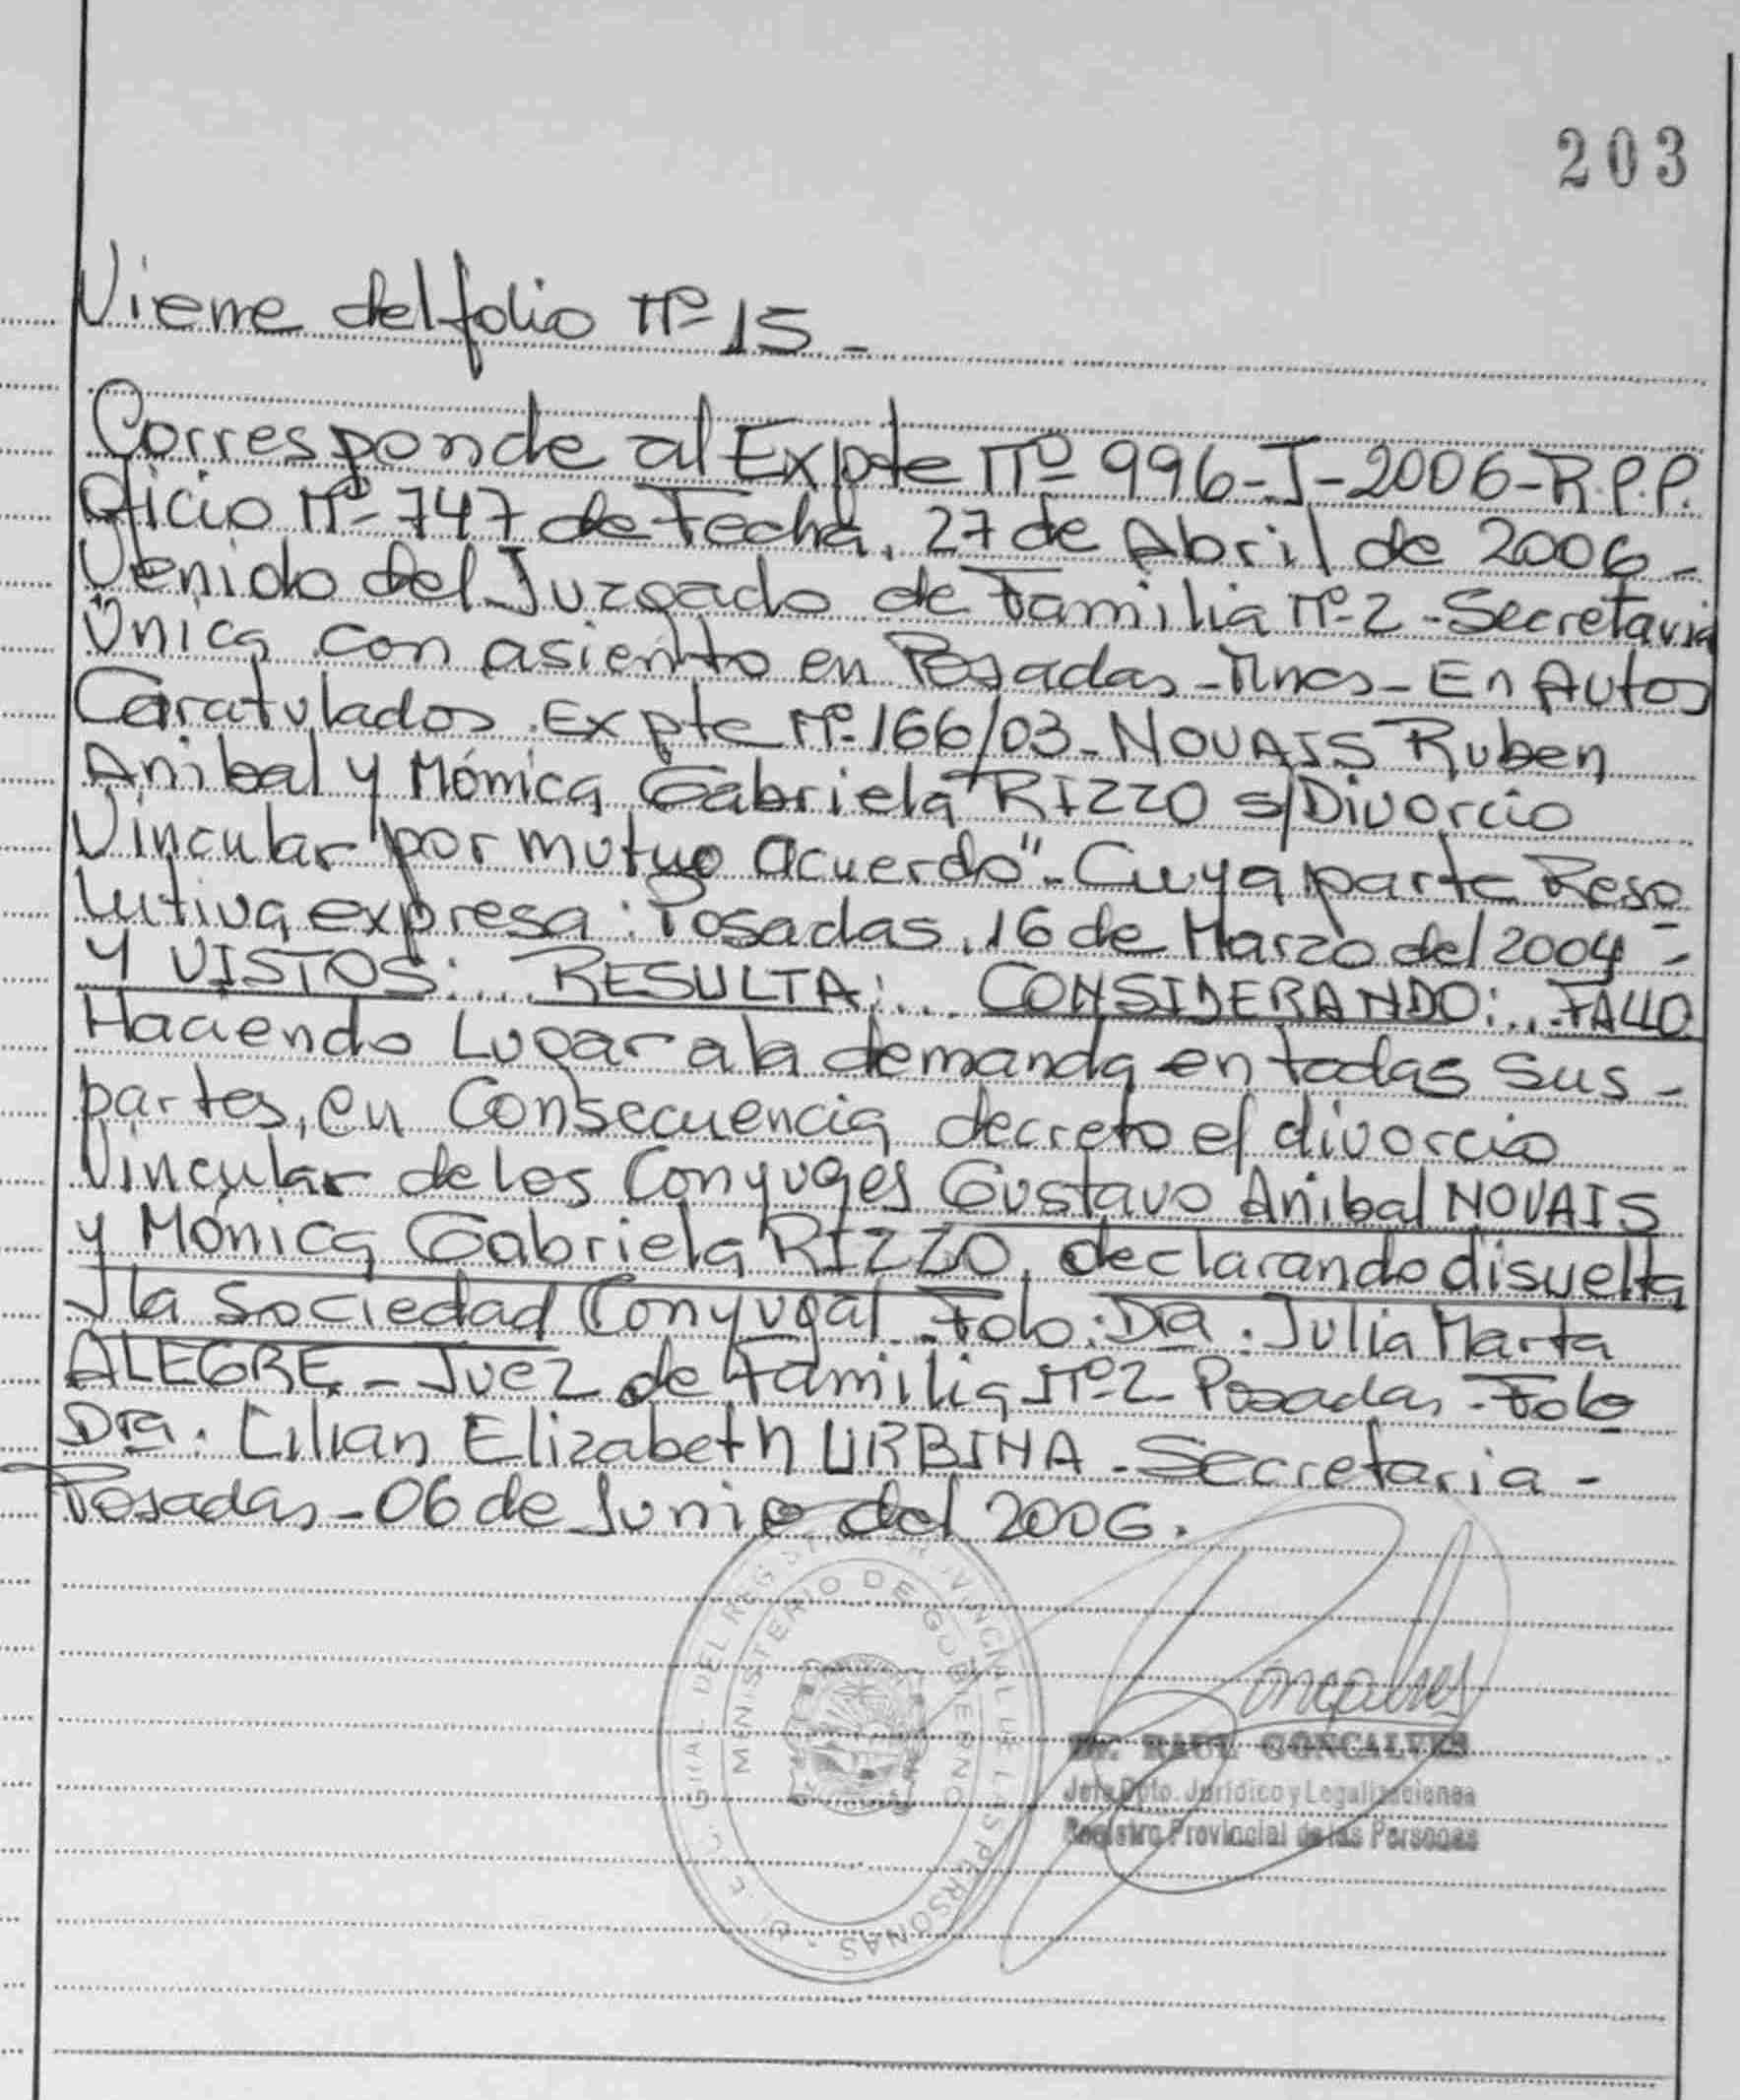 203
Viene del folio Nº 15 -
Corresponde al Expte Nº 996-J-2006-R.P.P.
Oficio Nº 747 de Fecha, 27 de Abril de 2006 -
Venido del Juzgado de Familia Nº 2 - Secretaria
Única con asiento en Posadas - Mnes - En Autos
Caratulados Expte Nº 166/03 - NOVAIS Ruben
Anibal y Mónica Gabriela RIZZO s/Divorcio
Vincular por mutuo acuerdo" - Cuya parte Reso
lutiva expresa: Posadas, 16 de Marzo del 2004 -
Y VISTOS: ... RESULTA: ... CONSIDERANDO: ... FALLO
Haciendo Lugar a la demanda en todas sus -
partes, en Consecuencia decreto el divorcio
Vincular de los Conyuges Gustavo Anibal NOVAIS
y Mónica Gabriela RIZZO, declarando disuelta
la Sociedad Conyugal. Fdo: Dra. Julia Marta
ALEGRE - Juez de Familia Nº 2 - Posadas - Fdo
Dra. Lilian Elizabeth URBINA - Secretaria -
Posadas - 06 de Junio del 2006.
MINISTERIO DE GOBIERNO
Goncalves
Dr. RAUL GONCALVES
Jefe Dpto. Jurídico y Legalizaciones
Registro Provincial de las Personas